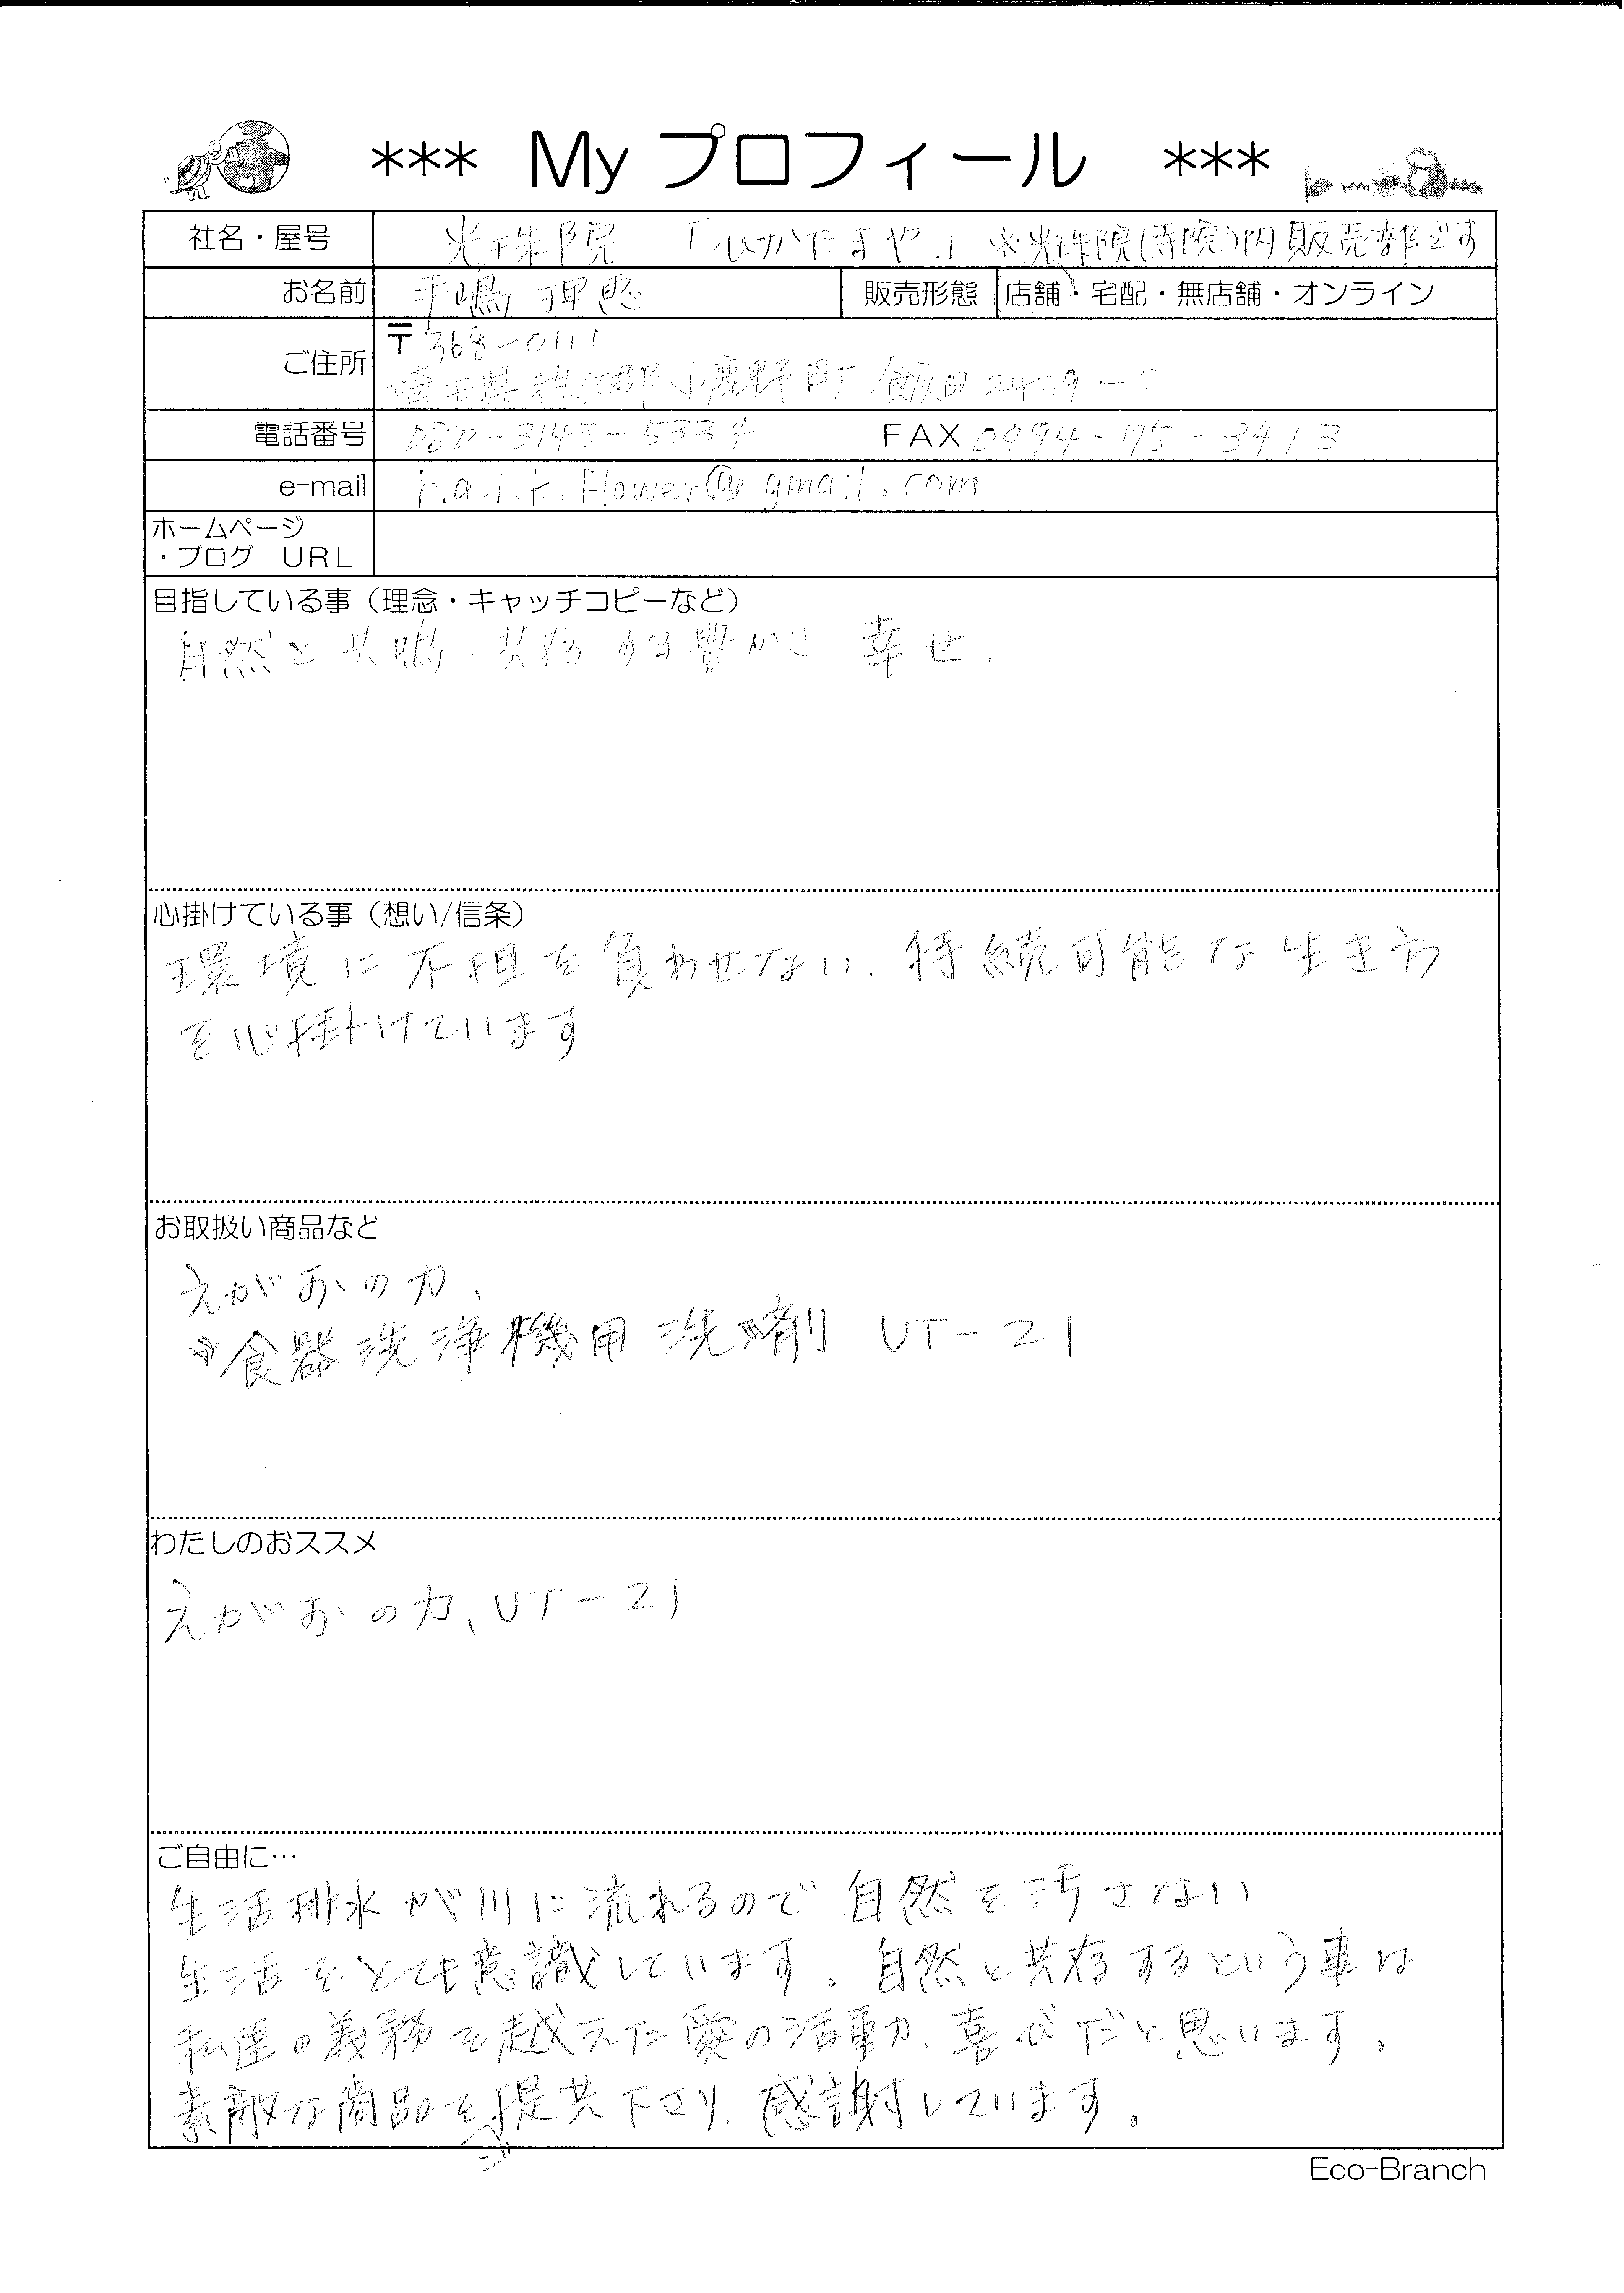 *** My プロフィール ***
社名・屋号 光珠院 「ひかたまや」 ※光珠院(寺院)内販売部です
お名前 手嶋 理恵 販売形態 店舗・宅配・無店舗・オンライン
ご住所 〒368-0111
埼玉県秩父郡小鹿野町 飯田2439-2
電話番号 080-3143-5334 FAX 0494-75-3413
e-mail r.a.i.k.flower@gmail.com
ホームページ
・ブログ URL
目指している事（理念・キャッチコピーなど）
自然と共鳴、共存する豊かさ 幸せ.
心掛けている事（想い/信条）
環境に不担を負わせない、持続可能な生き方
を心掛けています
お取扱い商品など
えがおの力、
※食器洗浄機用 洗剤 UT-21
わたしのおススメ
えがおの力、UT-21
ご自由に…
生活排水が川に流れるので自然を汚さない
生活をとても意識しています。自然と共存するという事は
私達の義務を越えた愛の活動、喜びだと思います。
素敵な商品を提共下さり、感謝しています。
Eco-Branch